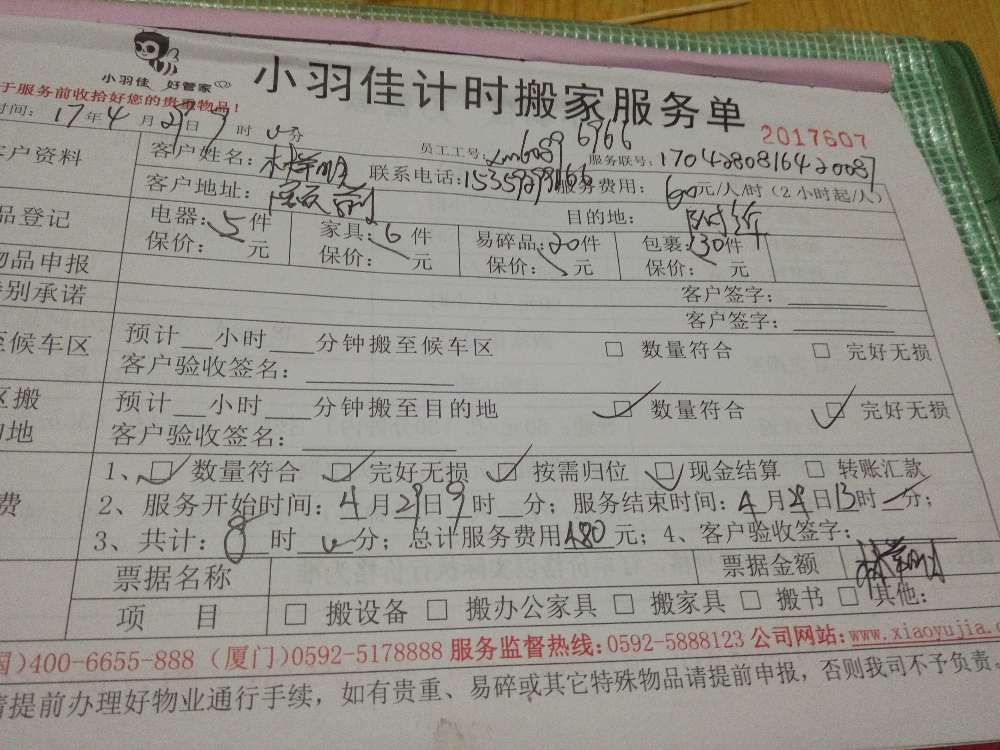 小羽佳 好管家
小羽佳计时搬家服务单
于服务前收拾好您的贵重物品！
2017607
时间：17年4月29日9时 分 员工工号： 服务联号：
户资料 客户姓名： 联系电话： 服务费用：60元/人/时（2小时起/人）
客户地址： 目的地：
品登记 电器：5件 家具：6件 易碎品：20件 包裹：30件
保价： 元 保价： 元 保价： 元 保价： 元
物品申报 客户签字：
特别承诺 客户签字：
至候车区 预计 小时 分钟搬至候车区 □ 数量符合 □ 完好无损
客户验收签名：
区搬 预计 小时 分钟搬至目的地 ☑ 数量符合 ☑ 完好无损
地 客户验收签名：
1、☑ 数量符合 ☑ 完好无损 ☑ 按需归位 ☑ 现金结算 □ 转账汇款
费 2、服务开始时间：4月29日9时 分；服务结束时间：4月29日13时 分；
3、共计：8时 分；总计服务费用480元；4、客户验收签字：
票据名称 票据金额
项 目 □ 搬设备 □ 搬办公家具 □ 搬家具 □ 搬书 □ 其他：
国)400-6655-888（厦门)0592-5178888 服务监督热线:0592-5888123 公司网站:www.xiaoyujia.c
请提前办理好物业通行手续，如有贵重、易碎或其它特殊物品请提前申报，否则我司不予负责